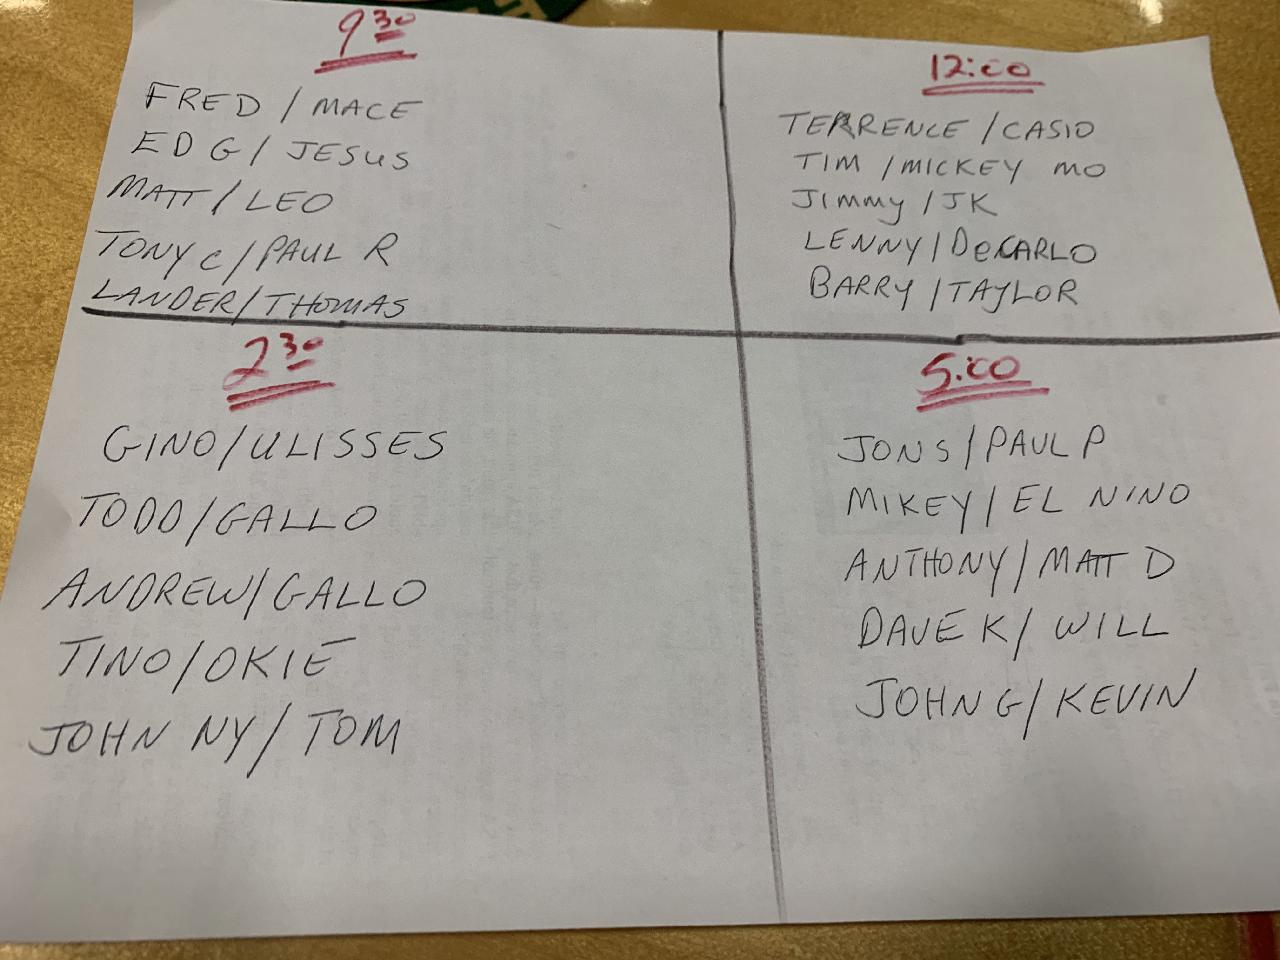 9 30
FRED / MACE
ED G / JESUS
MATT / LEO
TONY C / PAUL R
LANDER / THOMAS
12:00
TERRENCE / CASIO
TIM / MICKEY MO
JIMMY / JK
LENNY / DECARLO
BARRY / TAYLOR
2 30
GINO / ULISSES
TODD / GALLO
ANDREW / GALLO
TINO / OKIE
JOHN NY / TOM
5:00
JON S / PAUL P
MIKEY / EL NINO
ANTHONY / MATT D
DAVE K / WILL
JOHN G / KEVIN